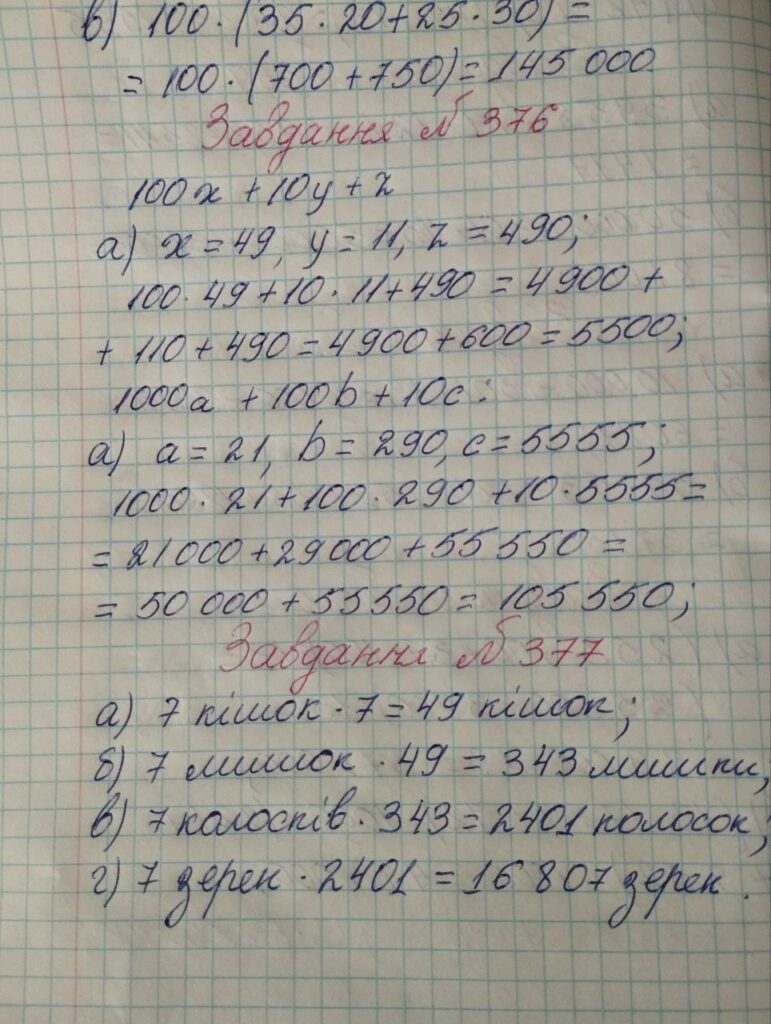 в) 100 · (35 · 20 + 25 · 30) =
= 100 · (700 + 750) = 145 000
Завдання № 376
100x + 10y + z
а) x = 49, y = 11, z = 490;
100 · 49 + 10 · 11 + 490 = 4900 +
+ 110 + 490 = 4900 + 600 = 5500;
1000a + 100b + 10c :
а) a = 21, b = 290, c = 5555;
1000 · 21 + 100 · 290 + 10 · 5555 =
= 21000 + 29000 + 55 550 =
= 50 000 + 55550 = 105 550;
Завдання № 377
а) 7 кішок · 7 = 49 кішок;
б) 7 мишок · 49 = 343 мишки;
в) 7 колосків · 343 = 2401 колосок;
г) 7 зерен · 2401 = 16 807 зерен.